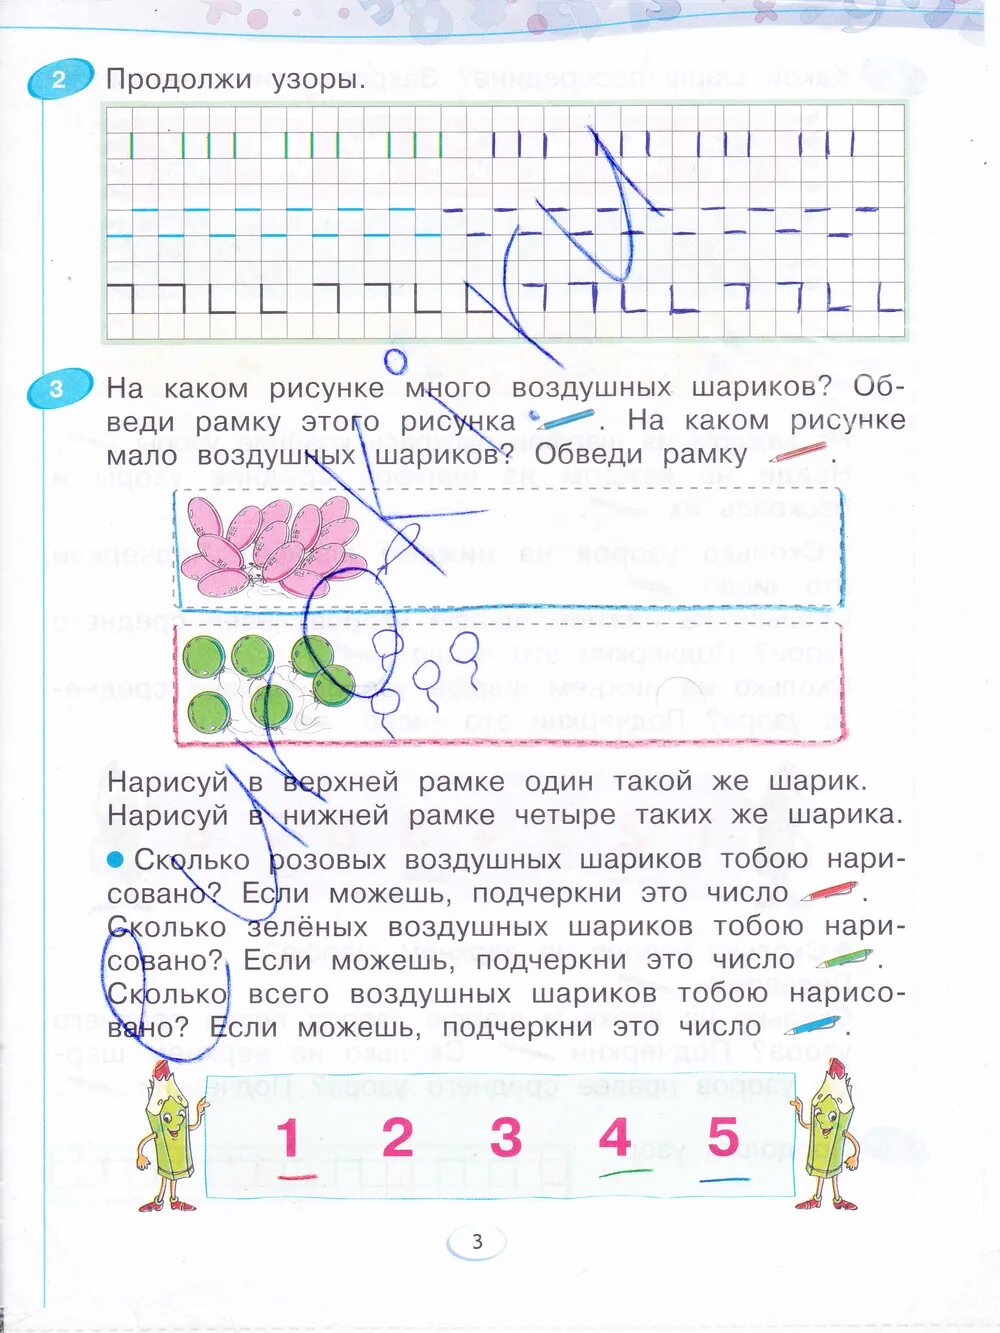 2 Продолжи узоры.
3 На каком рисунке много воздушных шариков? Об-
веди рамку этого рисунка . На каком рисунке
мало воздушных шариков? Обведи рамку .
Нарисуй в верхней рамке один такой же шарик.
Нарисуй в нижней рамке четыре таких же шарика.
Сколько розовых воздушных шариков тобою нари-
совано? Если можешь, подчеркни это число .
Сколько зелёных воздушных шариков тобою нари-
совано? Если можешь, подчеркни это число .
Сколько всего воздушных шариков тобою нарисо-
вано? Если можешь, подчеркни это число .
1 2 3 4 5
3